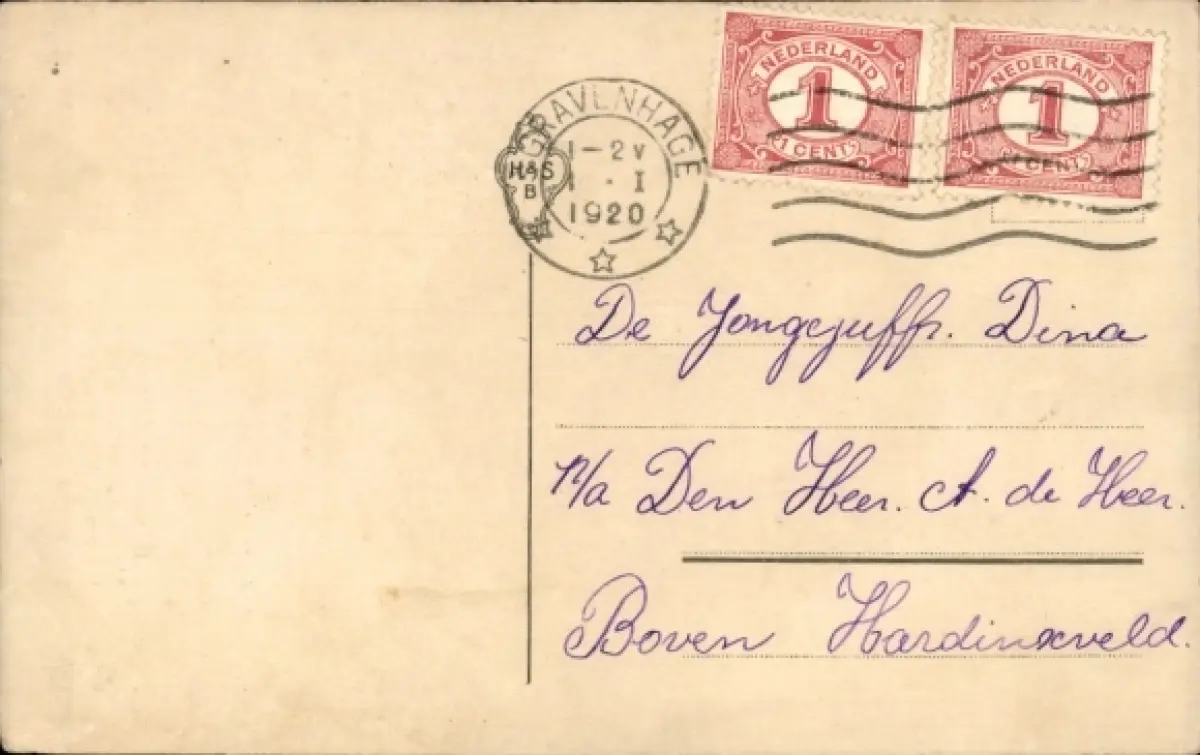 NEDERLAND
1
1 CENT
NEDERLAND
1
1 CENT
'S GRAVENHAGE
1-2V
1.I
1920
De Jongejuffr. Dina
p/a Den Heer. A. de Heer.
Boven Hardinxveld.